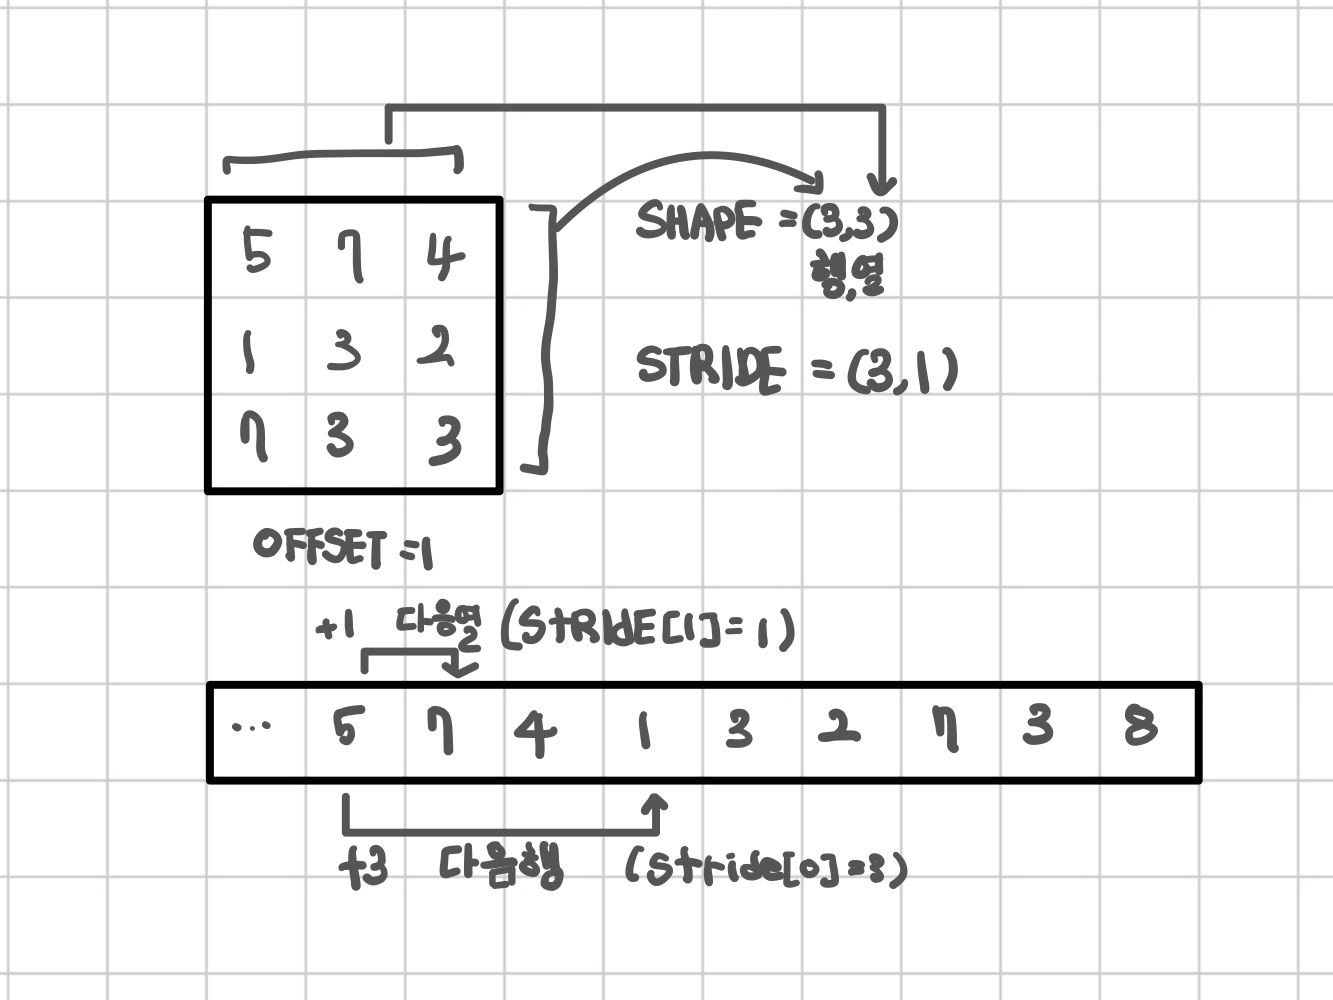 5 7 4
1 3 2
7 3 3
SHAPE = (3,3)
행,열
STRIDE = (3,1)
OFFSET = 1
+1 다음열 (StRIdE[1] = 1)
... 5 7 4 1 3 2 7 3 8
+3 다음행 (Stride[0] = 3)